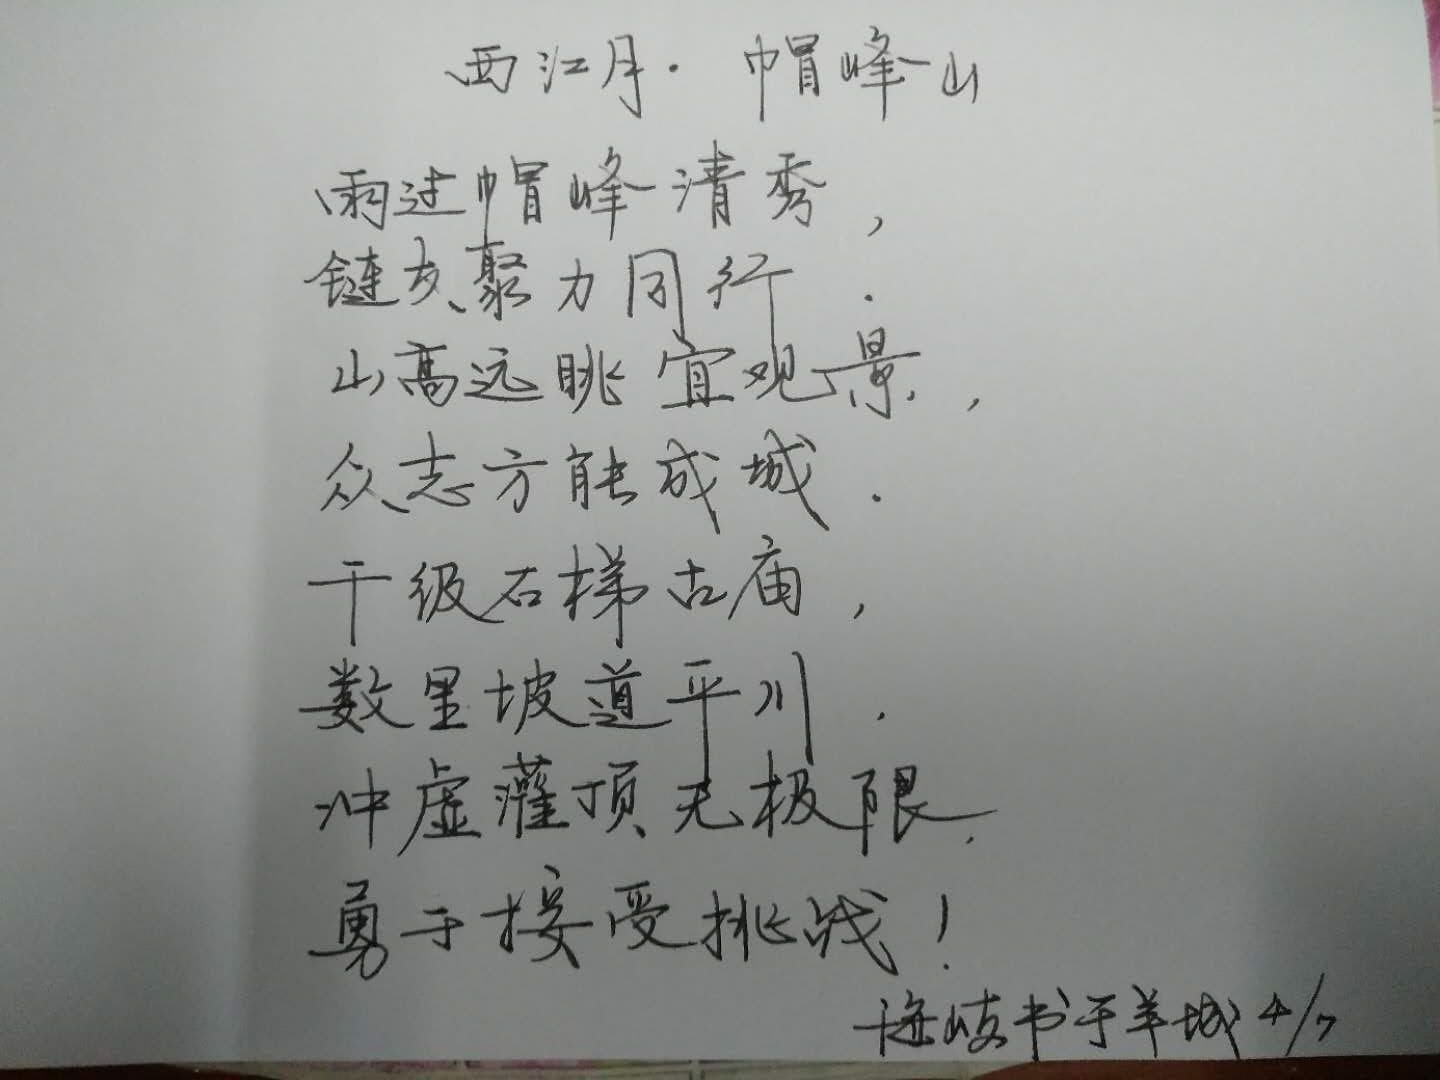 西江月·帽峰山
雨过帽峰清秀，
链友聚力同行.
山高远眺宜观景，
众志方能成城.
千级石梯古庙，
数里坡道平川.
冲虚灌顶无极限，
勇于接受挑战！
岐书于羊城4/7